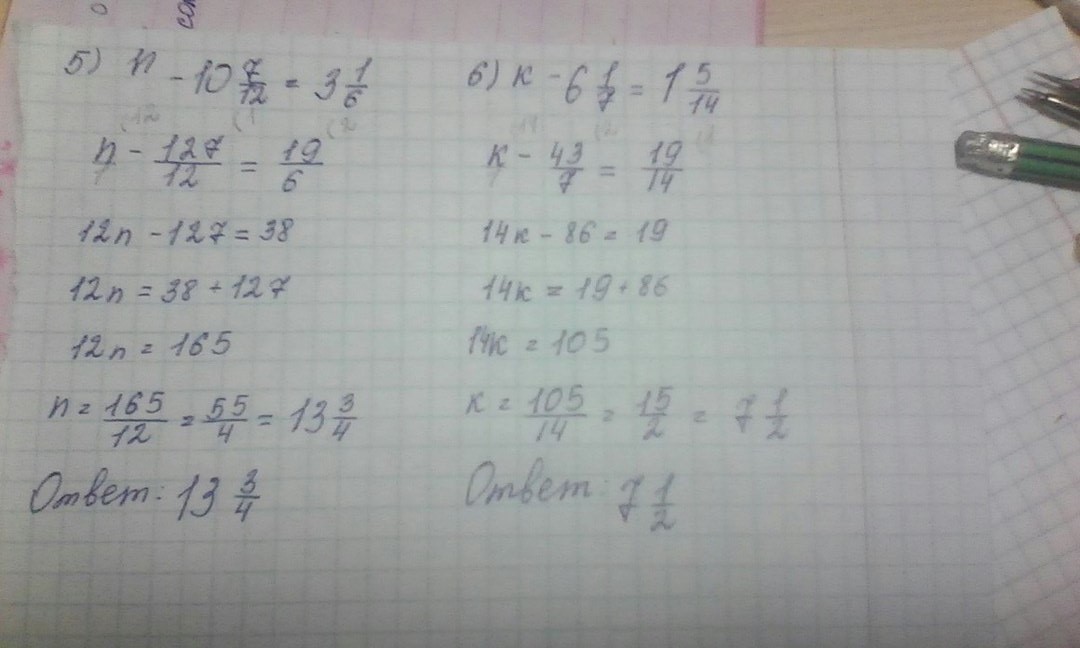 5) n - 10 7/12 = 3 1/6
n - 127/12 = 19/6
12n - 127 = 38
12n = 38 + 127
12n = 165
n = 165/12 = 55/4 = 13 3/4
Ответ: 13 3/4
6) к - 6 1/7 = 1 5/14
к - 43/7 = 19/14
14к - 86 = 19
14к = 19 + 86
14к = 105
к = 105/14 = 15/2 = 7 1/2
Ответ: 7 1/2